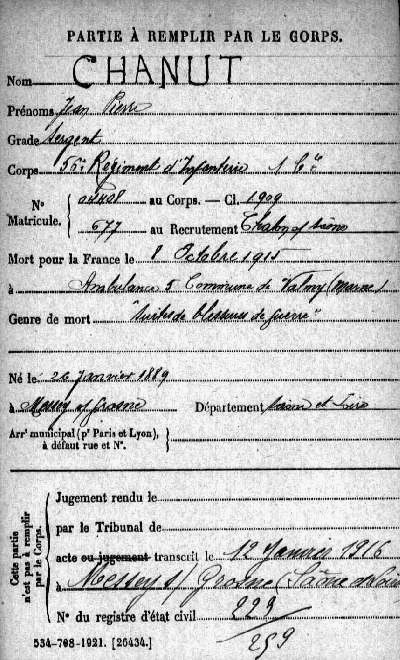 PARTIE À REMPLIR PAR LE CORPS.
Nom CHANUT
Prénoms Jean Pierre
Grade Sergent
Corps 56e Régiment d'Infanterie 1 Cie
N° Matricule. au Corps. — Cl. 1909
677 au Recrutement
Mort pour la France le 8 Octobre 1915
à Ambulance 5 Commune de Valmy (Marne)
Genre de mort "Suites de blessures de guerre"
Né le 26 Janvier 1889
à Messey s/ Grosne Département Saône et Loire
Arrt municipal (pr Paris et Lyon), à défaut rue et N°.
Cette partie n'est pas à remplir par le Corps.
Jugement rendu le
par le Tribunal de
acte ou jugement transcrit le 12 Janvier 1916
à Messey s/ Grosne (Saône et Loire
N° du registre d'état civil 229
259
534-708-1921. [26434.]